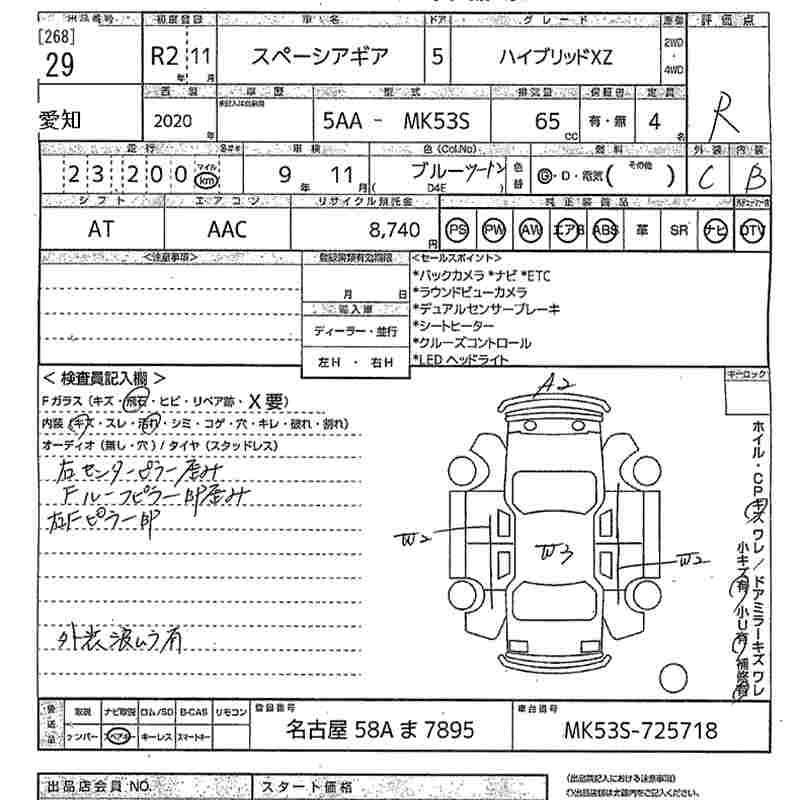 出品番号 初度登録 車名 ドア グレード 車歴 評価点
[268]
29 R2 11 スペーシアギア 5 ハイブリッドXZ 2WD・4WD
年 月
R
西暦 車歴 型式 排気量 保証書 定員
愛知 2020年 5AA - MK53S 65cc 有・無 4名
走行 車検 色(Col.No) 燃料 外装 内装
23,200 マイル km 9年 11月 ブルーツートン ( D4E ) 色替 G・D・電気( その他 ) C B
シフト エアコン リサイクル預託金 純正装備品
AT AAC 8,740円 PS PW AW エアB ABS 革 SR ナビ DTV
<注意事項> 登録書類有効期限 <セールスポイント>
月 日
*バックカメラ *ナビ *ETC
*ラウンドビューカメラ
輸入車 *デュアルセンサーブレーキ
ディーラー・並行 *シートヒーター
*クルーズコントロール
左H ・ 右H *LED ヘッドライト
<検査員記入欄> キーロック
Fガラス(キズ・飛石・ヒビ・リペア跡・X要)
内装(キズ・スレ・汚れ・シミ・コゲ・穴・キレ・破れ・割れ)
オーディオ(無し・穴)/タイヤ(スタッドレス)
右センターピラー歪み
Fルーフピラー部歪み
左Fピラー部
外装波ムラ有
A2
W2
W3
W2
ホイル・CPキズ ワレ/ドアミラーキズ ワレ
小キズ有 小U有 補修有
後送品 取説 ナビ取説 ロム/SD B-CAS リモコン 登録番号 車台番号
ナンバー スペアキー キーレス スマートキー 名古屋 58A ま 7895 MK53S-725718
出品店会員 NO. スタート価格
(出品票記入における注意事項)
○出品店様は太線内をご記入ください。